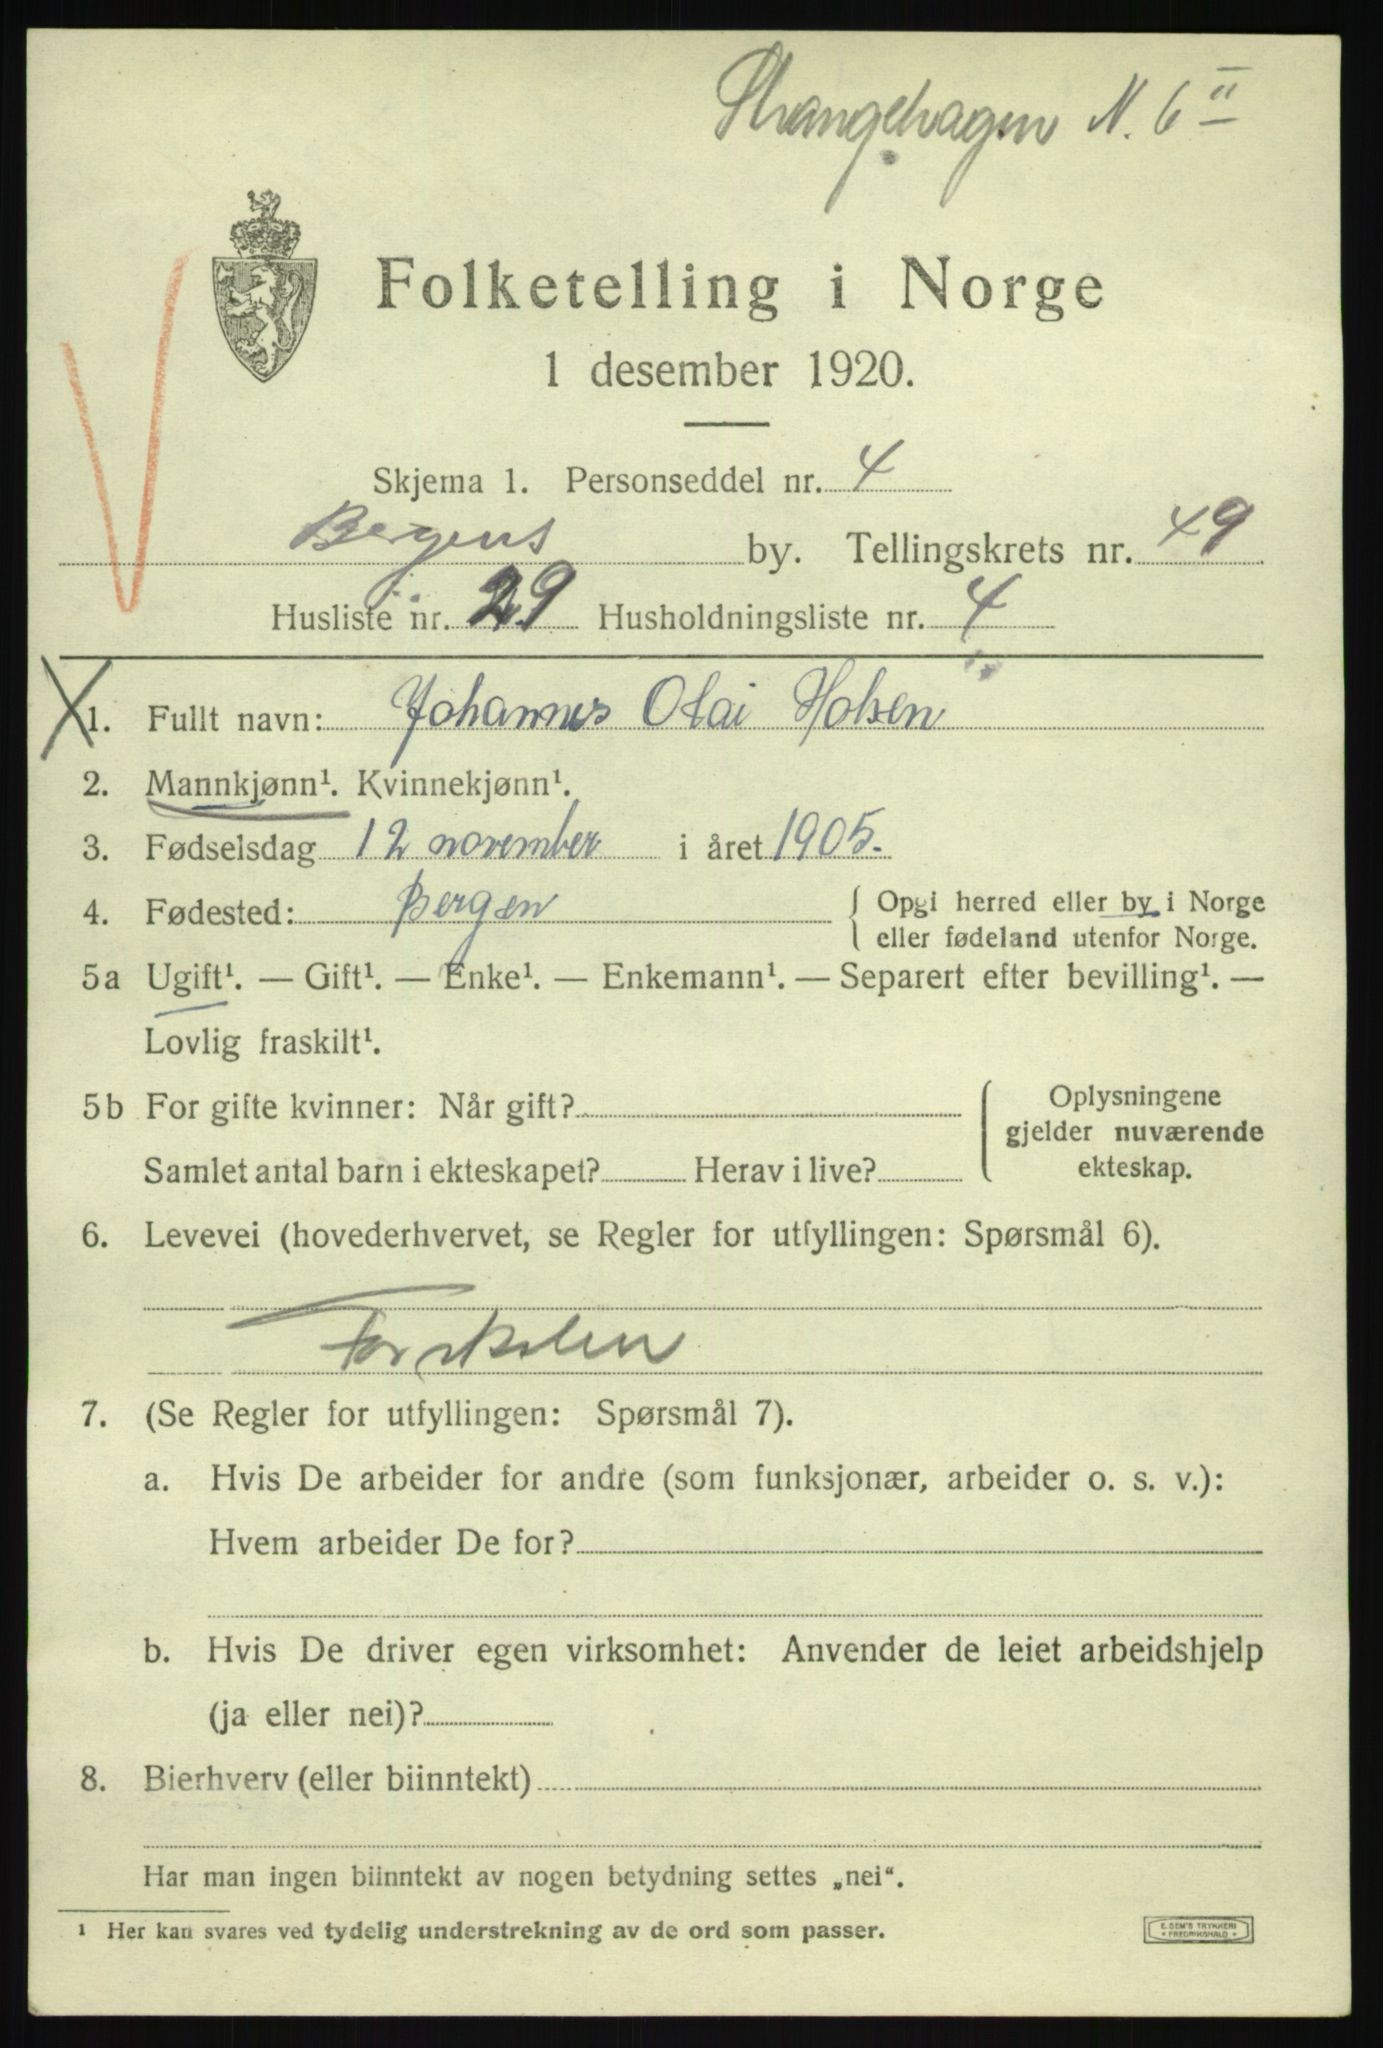 Strangehagen N. 6 II
Folketelling i Norge
1 desember 1920.
Skjema 1. Personseddel nr. 4
Bergens by. Tellingskrets nr. 49
Husliste nr. 29 Husholdningsliste nr. 4
1. Fullt navn: Johannes Olai Holsen
2. Mannkjønn¹. Kvinnekjønn¹.
3. Fødselsdag 12 november i året 1905.
4. Fødested: Bergen { Opgi herred eller by i Norge
eller fødeland utenfor Norge.
5a Ugift¹. — Gift¹. — Enke¹. — Enkemann¹. — Separert efter bevilling¹. —
Lovlig fraskilt¹.
5b For gifte kvinner: Når gift? { Oplysningene
gjelder nuværende
Samlet antal barn i ekteskapet? Herav i live? ekteskap.
6. Levevei (hovederhvervet, se Regler for utfyllingen: Spørsmål 6).
7. (Se Regler for utfyllingen: Spørsmål 7).
a. Hvis De arbeider for andre (som funksjonær, arbeider o. s. v.):
Hvem arbeider De for?
b. Hvis De driver egen virksomhet: Anvender de leiet arbeidshjelp
(ja eller nei)?
8. Bierhverv (eller biinntekt)
Har man ingen biinntekt av nogen betydning settes „nei“.
¹ Her kan svares ved tydelig understrekning av de ord som passer.
E. SEM'S TRYKKERI
• FREDRIKSHALD •